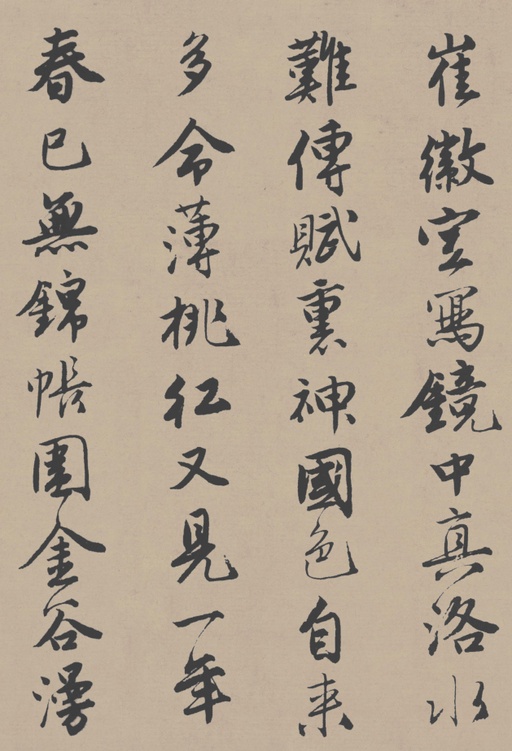 崔徽空寫鏡中真洛水
難傳賦裏神國色自来
多令薄桃紅又見一年
春已無錦帳圍金谷漫